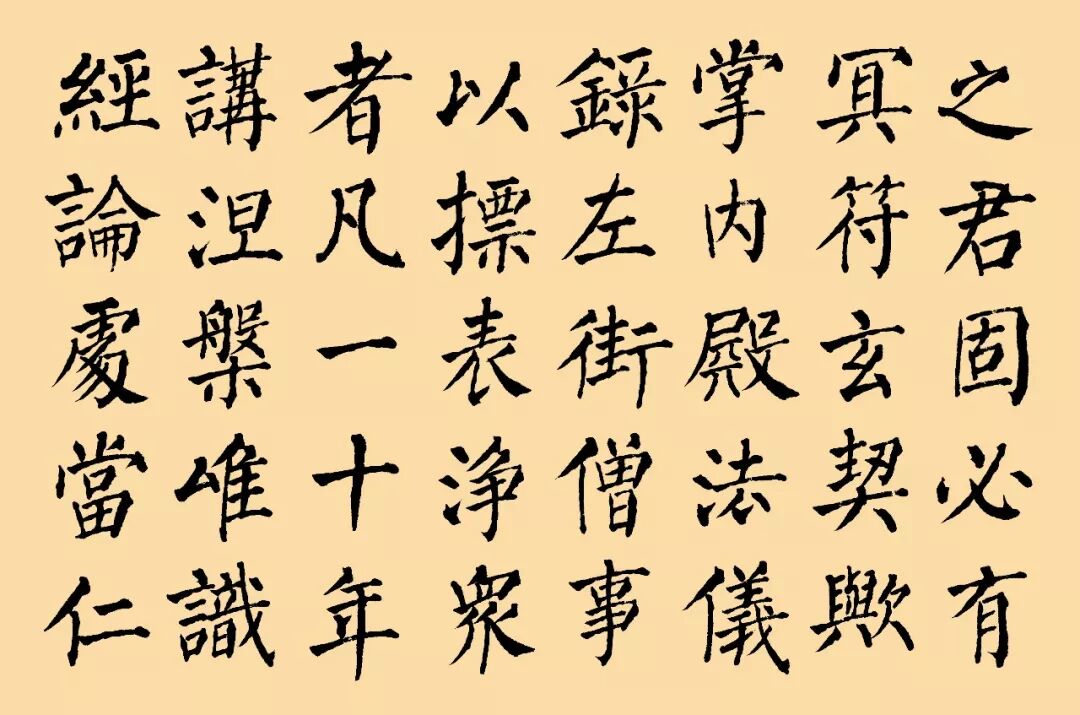 之君固必有
冥符玄契歟
掌內殿法儀
錄左街僧事
以標表淨眾
者凡一十年
講涅槃唯識
經論處當仁